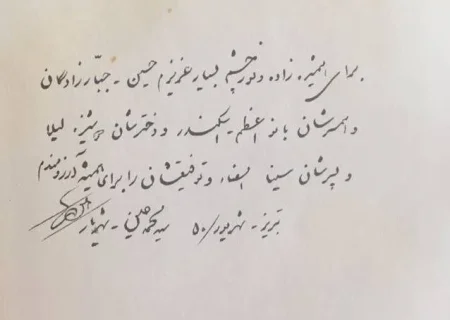 برای همشیره زاده و نور چشم بسیار عزیزم حسین - جبّارزادگان
و همسرشان بانو اعظم - اسکندر و دخترشان لیلا
و پسرشان سینا و توفیقشان را برای همیشه آرزومندم
تبریز - شهریور/۵۰ سید محمد حسین - شهریار